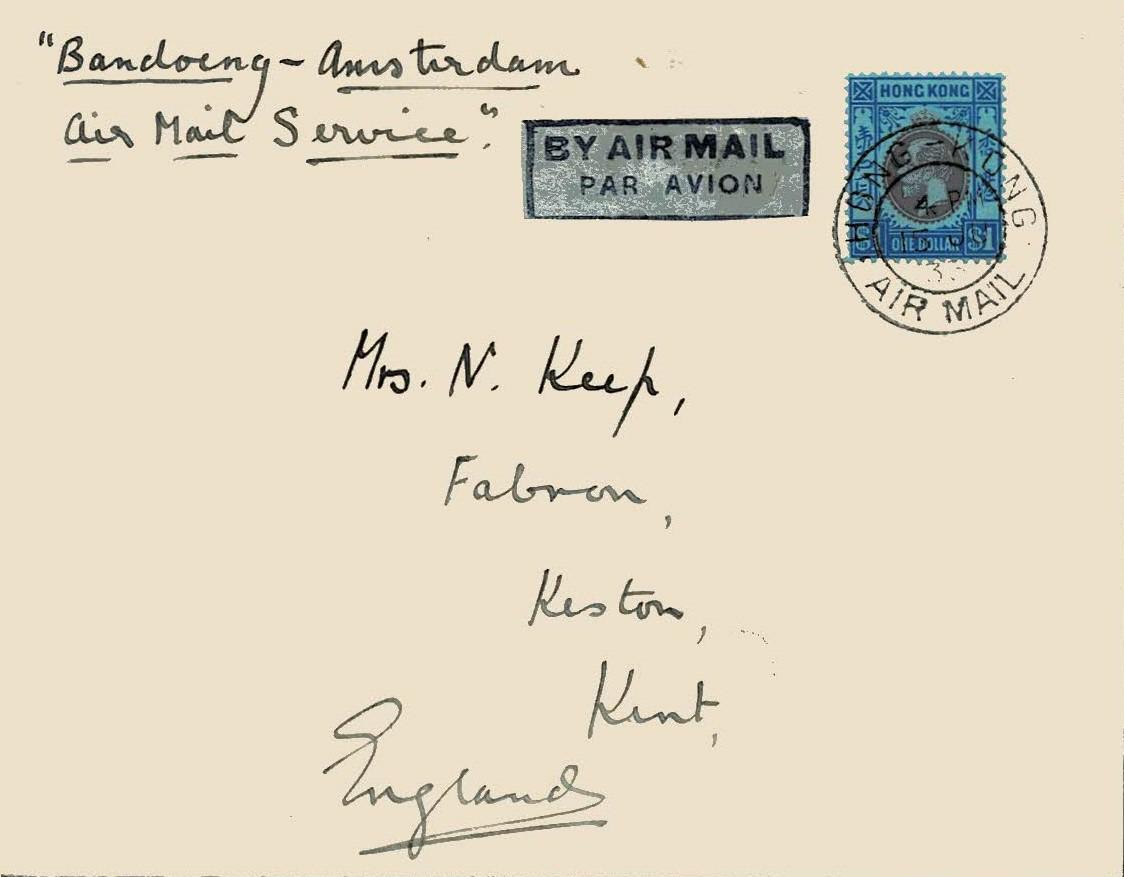 "Bandoeng - Amsterdam
Air Mail Service".
BY AIR MAIL
PAR AVION
HONG KONG
ONE DOLLAR $1
HONG-KONG
4 PM
15
AIR MAIL
Mrs. N. Keep,
Fabron,
Keston,
Kent,
England